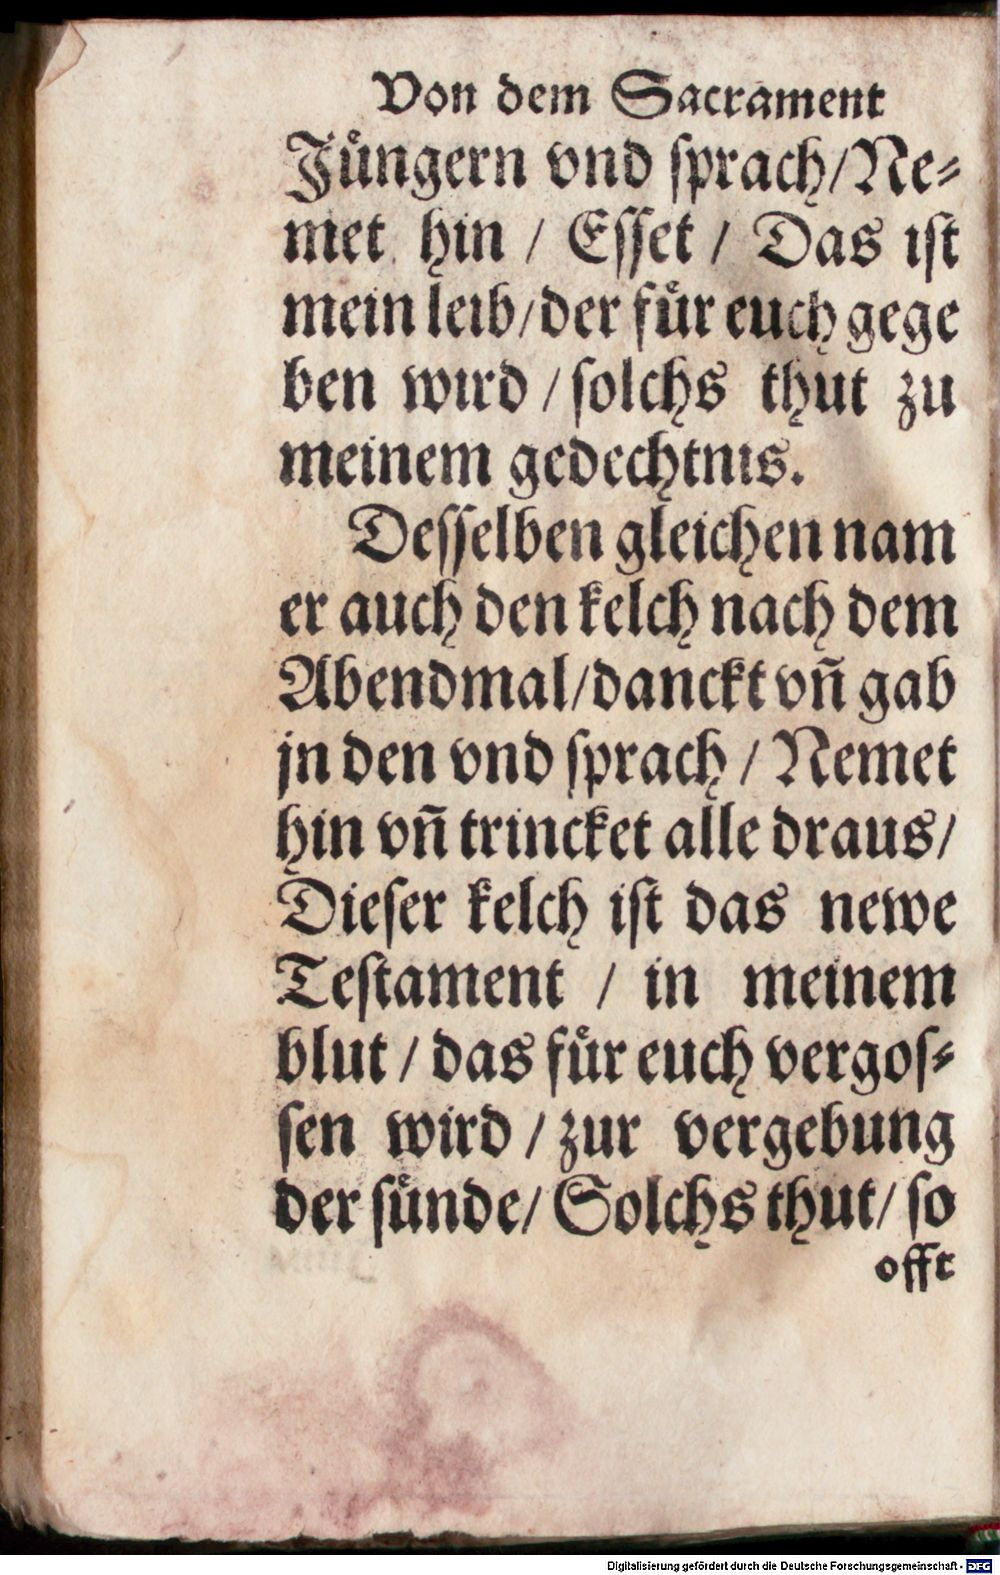 Von dem Sacrament
Jüngern vnd sprach/Ne-
met hin / Esset / Das ist
mein leib/der für euch gege
ben wird / solchs thut zu
meinem gedechtnis.
Desselben gleichen nam
er auch den kelch nach dem
Abendmal/danckt vñ gab
jn den vnd sprach / Nemet
hin vñ trincket alle draus/
Dieser kelch ist das newe
Testament / in meinem
blut / das für euch vergos-
sen wird / zur vergebung
der sünde/ Solchs thut/ so
offt
Digitalisierung gefördert durch die Deutsche Forschungsgemeinschaft - DFG